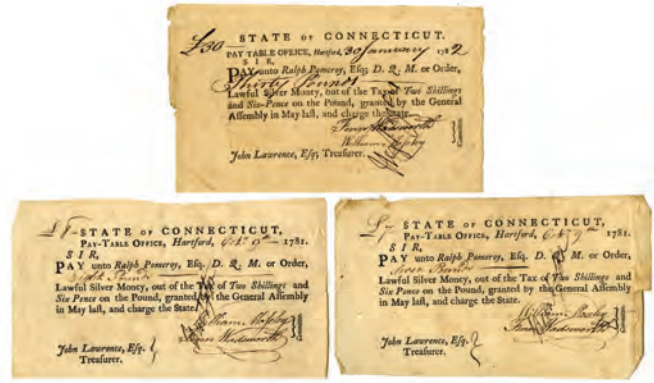 £30— STATE OF CONNECTICUT.
PAY TABLE OFFICE, Hartford, 30 January 1782
SIR,
PAY unto Ralph Pomeroy, Esq; D. Q. M. or Order,
Thirty Pounds
Lawful Silver Money, out of the Tax of Two Shillings
and Six-Pence on the Pound, granted by the General
Assembly in May last, and charge the State.
Fenn Wadsworth
William Mosely
John Lawrence, Esq; Treasurer.
STATE OF CONNECTICUT,
PAY-TABLE OFFICE, Hartford, 9th 1781.
SIR,
PAY unto Ralph Pomeroy, Esq. D. Q. M. or Order,
Pounds
Lawful Silver Money, out of the Tax of Two Shillings and
Six Pence on the Pound, granted by the General Assembly
in May last, and charge the State.
William Mosely
Fenn Wadsworth
John Lawrence, Esq.
Treasurer.
STATE OF CONNECTICUT,
PAY-TABLE OFFICE, Hartford, 9th 1781.
SIR,
PAY unto Ralph Pomeroy, Esq. D. Q. M. or Order,
Seven Pounds
Lawful Silver Money, out of the Tax of Two Shillings and
Six Pence on the Pound, granted by the General Assembly
in May last, and charge the State.
William Mosely
Fenn Wadsworth
John Lawrence, Esq.
Treasurer.